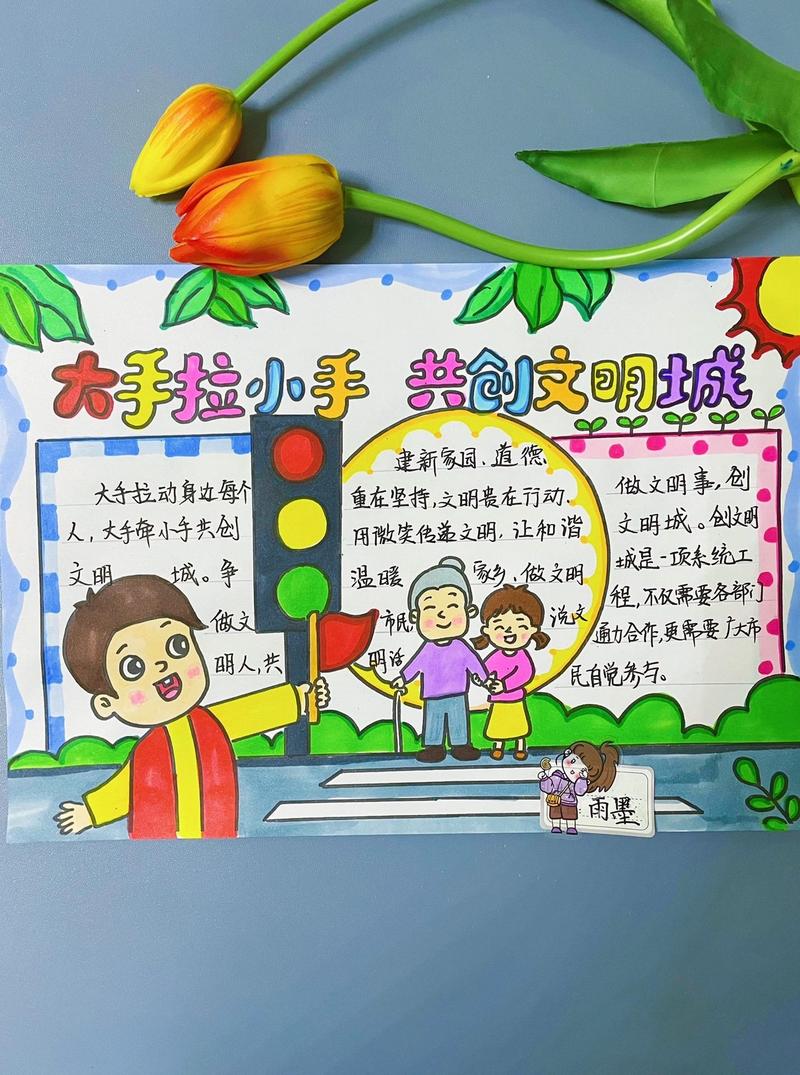 大手拉小手 共创文明城
大手拉动身边每个
人,大手牵小手共创
文明 城。争
做文
明人,共
建新家园、道德
重在坚持,文明贵在行动.
用微笑传递文明,让和谐
温暖 家乡、做文明
市民, 说文
明话
做文明事,创
文明城。创文明
城是一项系统工
程,不仅需要各部门
通力合作,更需要广大市
民自觉参与。
雨墨